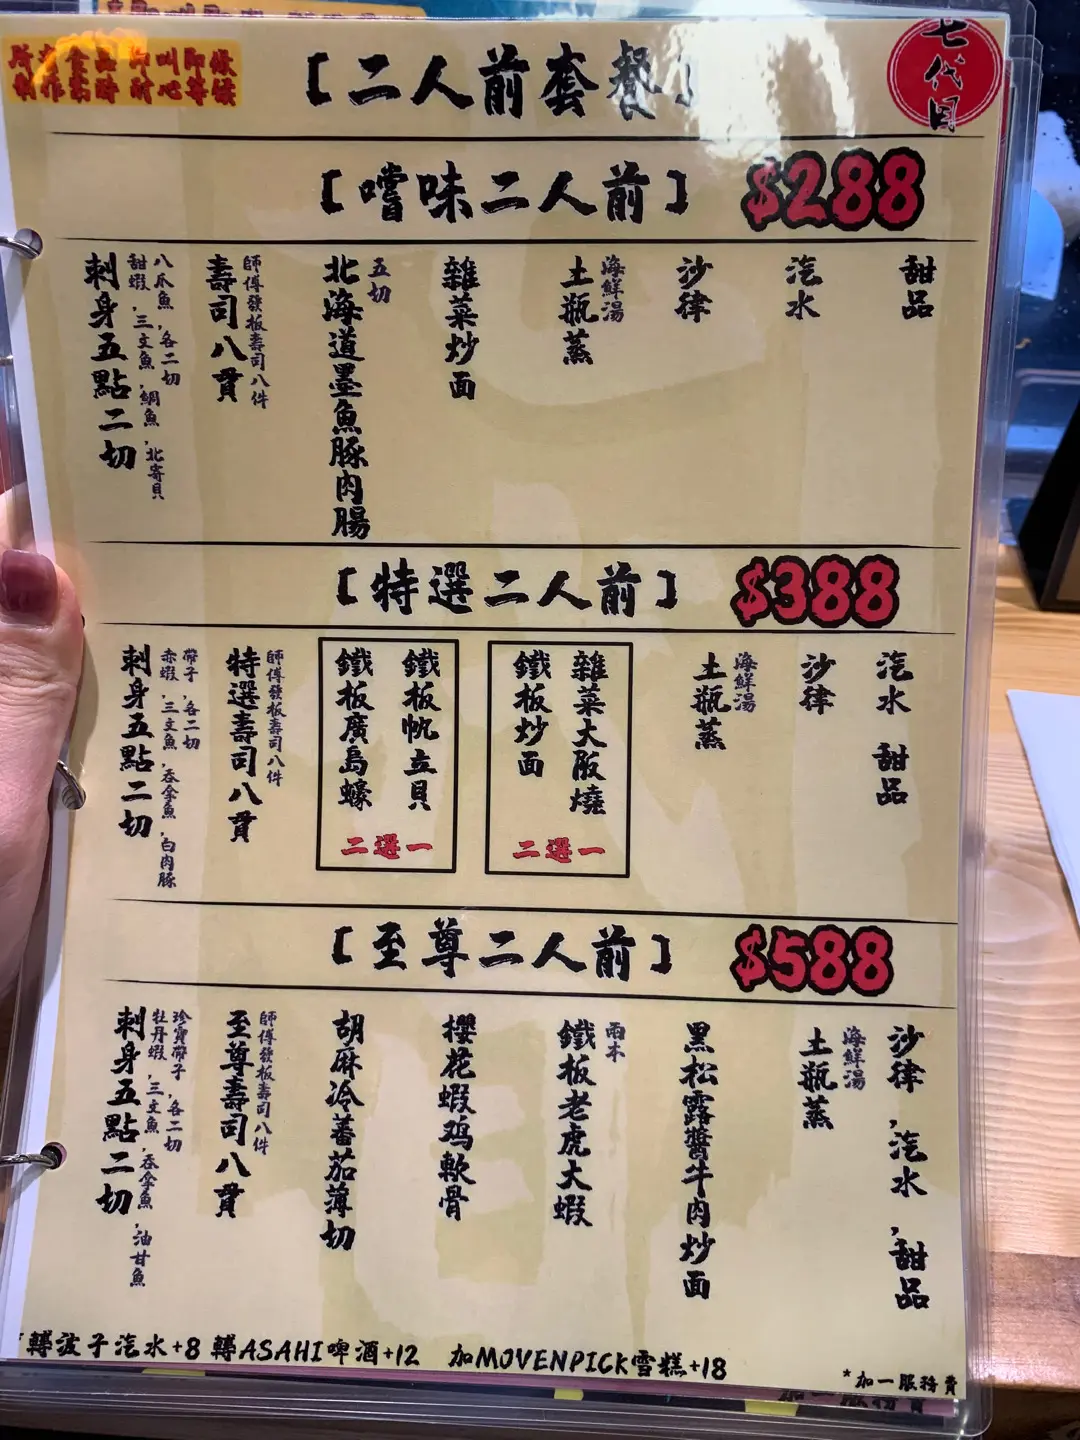 所有食品即叫即
製作需時 耐心等候
七代目
【二人前套餐】
【嚐味二人前】 $288
刺身五點二切
八爪魚，各二切
甜蝦，三文魚，鯛魚，北寄貝
壽司八貫
師傅發板壽司八件
北海道墨魚豚肉腸
五切
雜菜炒面
土瓶蒸
海鮮湯
沙律
汽水
甜品
【特選二人前】 $388
刺身五點二切
帶子，各二切
赤蝦，三文魚，吞拿魚，白肉豚
特選壽司八貫
師傅發板壽司八件
鐵板廣島蠔
鐵板帆立貝
二選一
鐵板炒面
雜菜大阪燒
二選一
土瓶蒸
海鮮湯
沙律
汽水 甜品
【至尊二人前】 $588
刺身五點二切
珍寶帶子，各二切
牡丹蝦，三文魚，吞拿魚，油甘魚
至尊壽司八貫
師傅發板壽司八件
胡麻冷蕃茄薄切
櫻花蝦鸡軟骨
鐵板老虎大蝦
黑松露醬牛肉炒面
土瓶蒸
海鮮湯
沙律，汽水，甜品
轉波子汽水+8 轉ASAHI啤酒+12 加MOVENPICK雪糕+18
*加一服務費